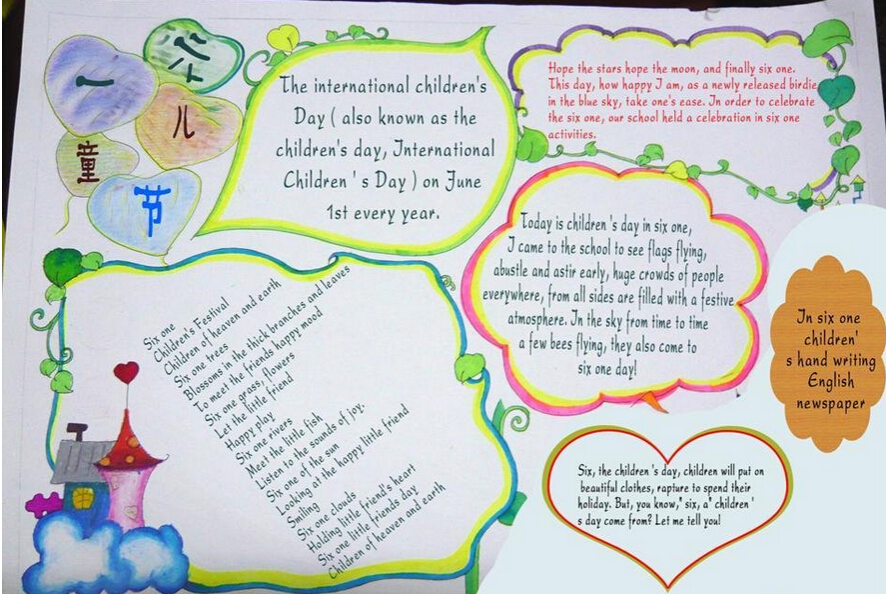 六一儿童节
The international children's
Day ( also known as the
children's day, International
Children ' s Day ) on June
1st every year.
Hope the stars hope the moon, and finally six one.
This day, how happy I am, as a newly released birdie
in the blue sky, take one's ease. In order to celebrate
the six one, our school held a celebration in six one
activities.
Today is children's day in six one,
I came to the school to see flags flying,
abustle and astir early, huge crowds of people
everywhere, from all sides are filled with a festive
atmosphere. In the sky from time to time
a few bees flying, they also come to
six one day!
In six one
children'
s hand writing
English
newspaper
Six one
Children's Festival
Children of heaven and earth
Six one trees
Blossoms in the thick branches and leaves
To meet the friends happy mood
Six one grass, flowers
Let the little friend
Happy play
Six one rivers
Meet the little fish
Listen to the sounds of joy.
Six one of the sun
Looking at the happy little friend
Smiling
Six one clouds
Holding little friend's heart
Six one little friends day
Children of heaven and earth
Six, the children 's day, children will put on
beautiful clothes, rapture to spend their
holiday. But, you know," six, a' children '
s day come from? Let me tell you!